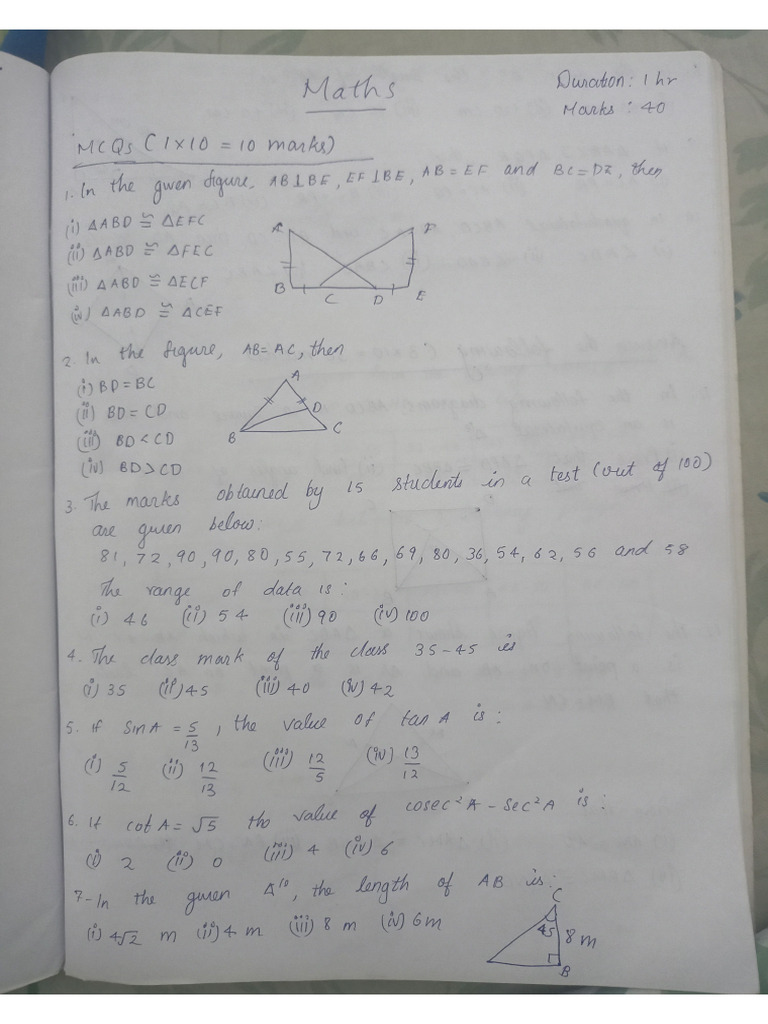 Maths
Duration: 1 hr
Marks : 40
MCQs (1×10 = 10 marks)
1. In the given figure, AB⊥BE, EF⊥BE, AB = EF and BC = DE, then
(i) △ABD ≅ △EFC
(ii) △ABD ≅ △FEC
(iii) △ABD ≅ △ECF
(iv) △ABD ≅ △CEF
A F
B C D E
2. In the figure, AB = AC, then
(i) BD = BC
(ii) BD = CD
(iii) BD < CD
(iv) BD > CD
A
D
B C
3. The marks obtained by 15 students in a test (out of 100)
are given below:
81, 72, 90, 90, 80, 55, 72, 66, 69, 80, 36, 54, 62, 56 and 58
The range of data is:
(i) 46 (ii) 54 (iii) 90 (iv) 100
4. The class mark of the class 35-45 is
(i) 35 (ii) 45 (iii) 40 (iv) 42
5. If sin A = 5/13, the value of tan A is:
(i) 5/12 (ii) 12/13 (iii) 12/5 (iv) 13/12
6. If cot A = √5 the value of cosec²A - sec²A is:
(i) 2 (ii) 0 (iii) 4 (iv) 6
7- In the given △, the length of AB is:
(i) 4√2 m (ii) 4 m (iii) 8 m (iv) 6m
C
45 8 m
B